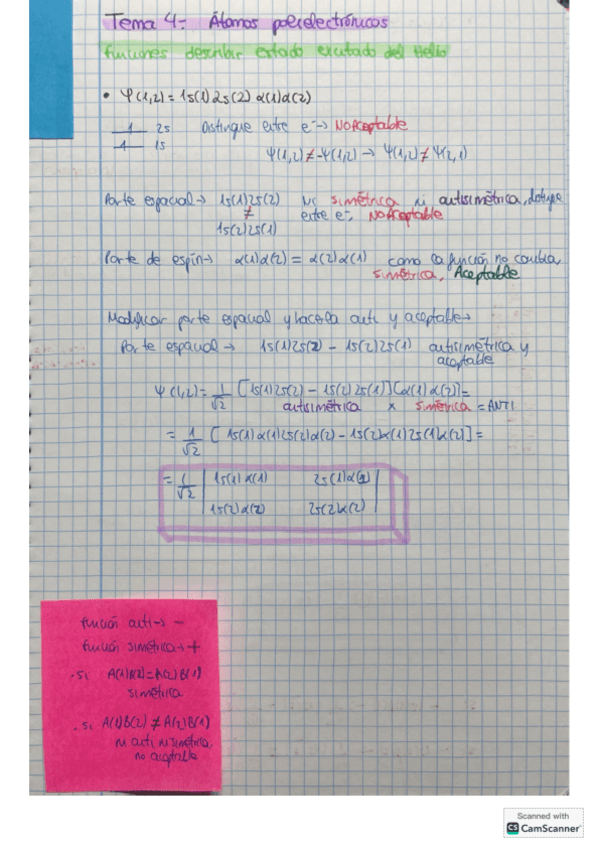 Tema 4:- Átomos polielectrónicos
funciones describir estado excitado del Helio
• Ψ(1,2) = 1s(1)2s(2) α(1)α(2)
1 2s Distingue entre e⁻→ NO Aceptable
1 1s
Ψ(1,2) ≠ -Ψ(1,2) → Ψ(1,2) ≠ Ψ(2,1)
Parte espacial → 1s(1)2s(2) Ni simétrica ni antisimétrica, distingue
≠ entre e⁻. No Aceptable
1s(2)2s(1)
Parte de espín → α(1)α(2) = α(2)α(1) como la función no cambia,
simétrica, Aceptable
Modificar parte espacial y hacerla anti y aceptable→
Parte espacial → 1s(1)2s(2) - 1s(2)2s(1) antisimétrica y
aceptable
Ψ(1,2) = 1/√2 [1s(1)2s(2) - 1s(2)2s(1)][α(1)α(2)] =
antisimétrica x simétrica = ANTI
= 1/√2 [1s(1)α(1)2s(2)α(2) - 1s(2)α(1)2s(1)α(2)] =
= 1/√2 | 1s(1)α(1) 2s(1)α(1) |
| 1s(2)α(2) 2s(2)α(2) |
función anti→ -
función simétrica→ +
. si A(1)B(2)=A(2)B(1)
simétrica
. si A(1)B(2) ≠ A(2)B(1)
ni anti ni simétrica,
no aceptable
Scanned with
CS CamScanner